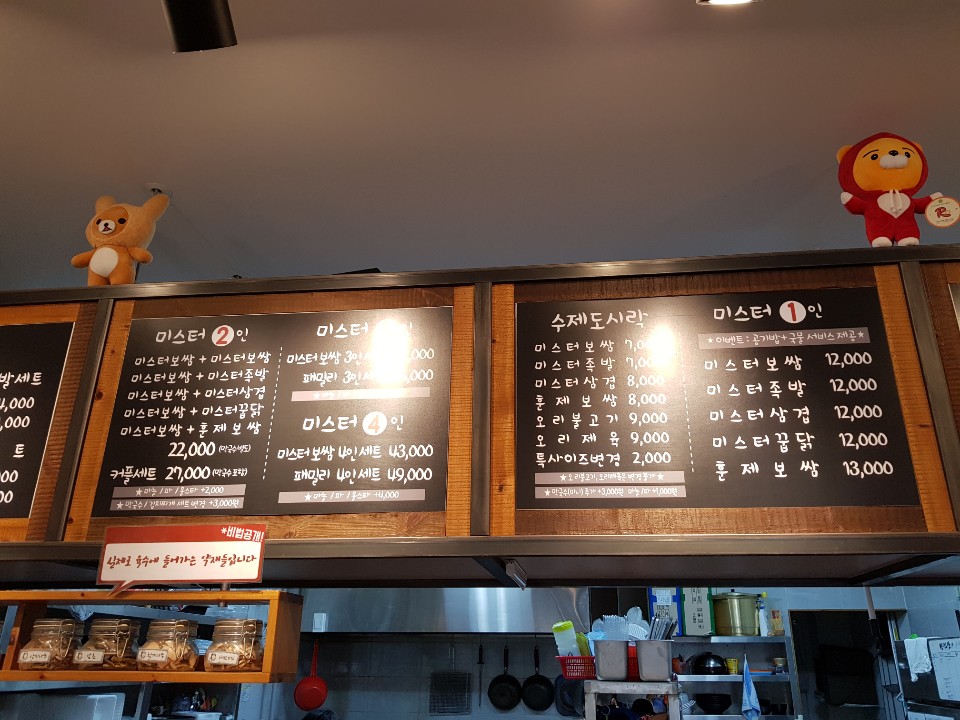 발세트
4,000
,000
트
000
00
미스터 2인
미스터보쌈 + 미스터보쌈
미스터보쌈 + 미스터족발
미스터보쌈 + 미스터삼겹
미스터보쌈 + 미스터꿈닭
미스터보쌈 + 훈제보쌈
22,000 (막국수별도)
커플세트 27,000 (막국수포함)
★ 마늘 / 파 / 불스타 +2,000
★ 막국수 / 김치찌개 세트 변경 +3,000원
미스터 인
미스터보쌈 3인세 ,000
패밀리 3인세 ,000
미스터 4인
미스터보쌈 4인세트 43,000
패밀리 4인세트 49,000
★ 마늘 / 파 / 불스타 +4,000
수제도시락
미스터보쌈 7,0
미스터족발 7,00
미스터삼겹 8,000
훈제보쌈 8,000
오리불고기 9,000
오리제육 9,000
특사이즈변경 2,000
★ 막국수(미니) 추가 +3,000원 마늘 +1,000원
미스터 1인
★ 이벤트 : 공기밥 + 국물 서비스 제공 ★
미스터보쌈 12,000
미스터족발 12,000
미스터삼겹 12,000
미스터꿈닭 12,000
훈제보쌈 13,000
*비법공개!
실제로 육수에 들어가는 약재들입니다
R